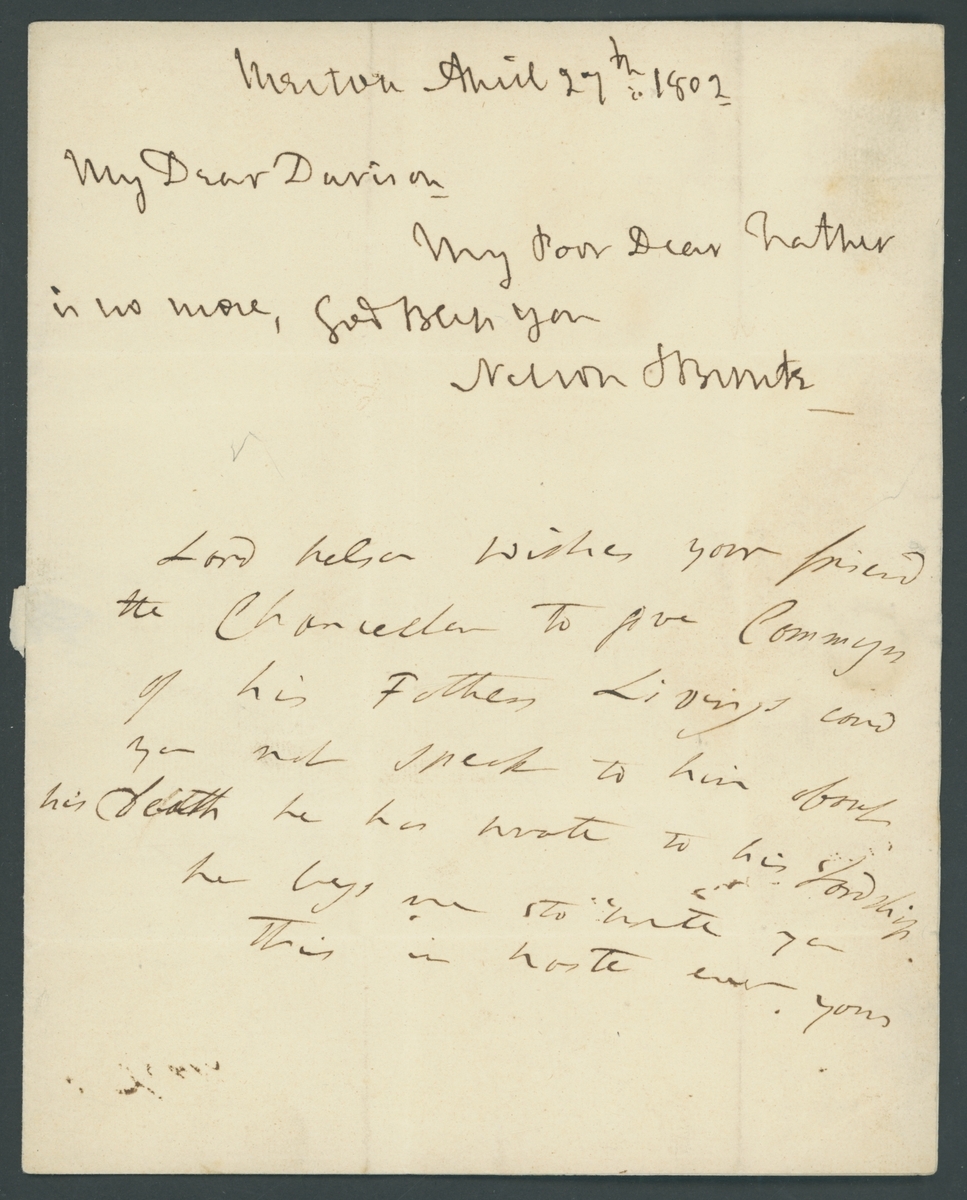 Merton April 27th: 1802
My Dear Davison
My Poor Dear Father
is no more, God Bless you
Nelson & Bronte
Lord Nelson wishes your friend
the Chancellor to give
of his Fathers Livings
you not speak to him about
his death he has wrote to his Lordship.
he begs me to write you
this in haste ever yours